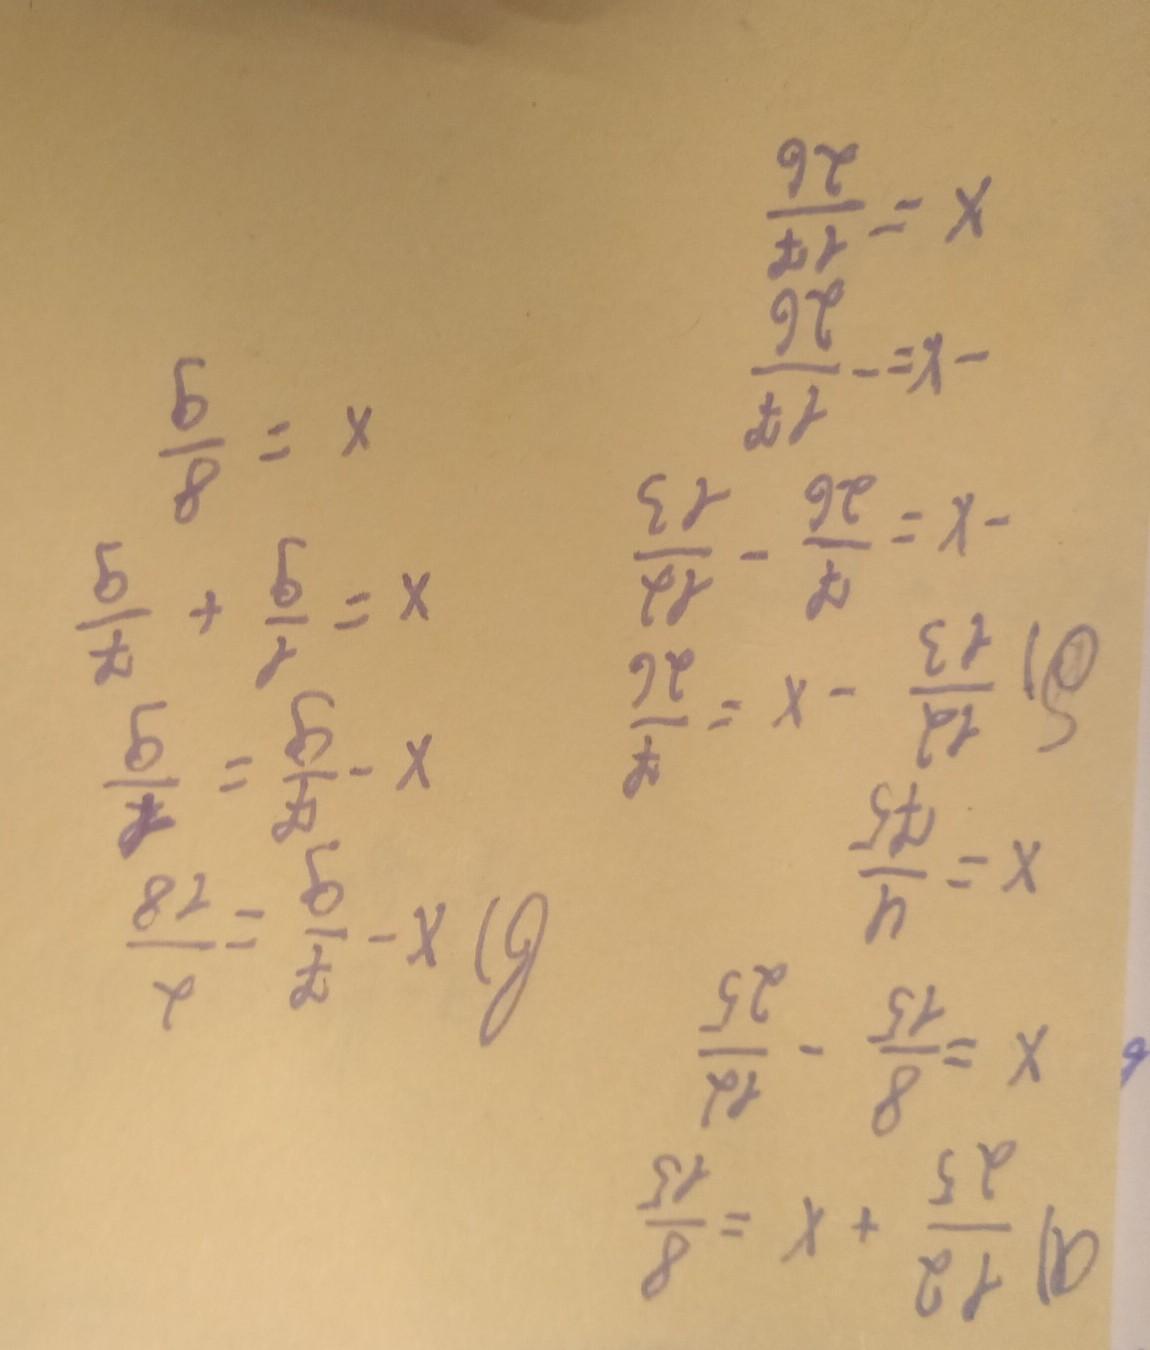 а) 12/25 + x = 8/15
x = 8/15 - 12/25
x = 4/75
б) 12/13 - x = 7/26
-x = 7/26 - 12/13
-x = -17/26
x = 17/26
в) x - 7/9 = 2/18
x - 7/9 = 1/9
x = 1/9 + 7/9
x = 8/9